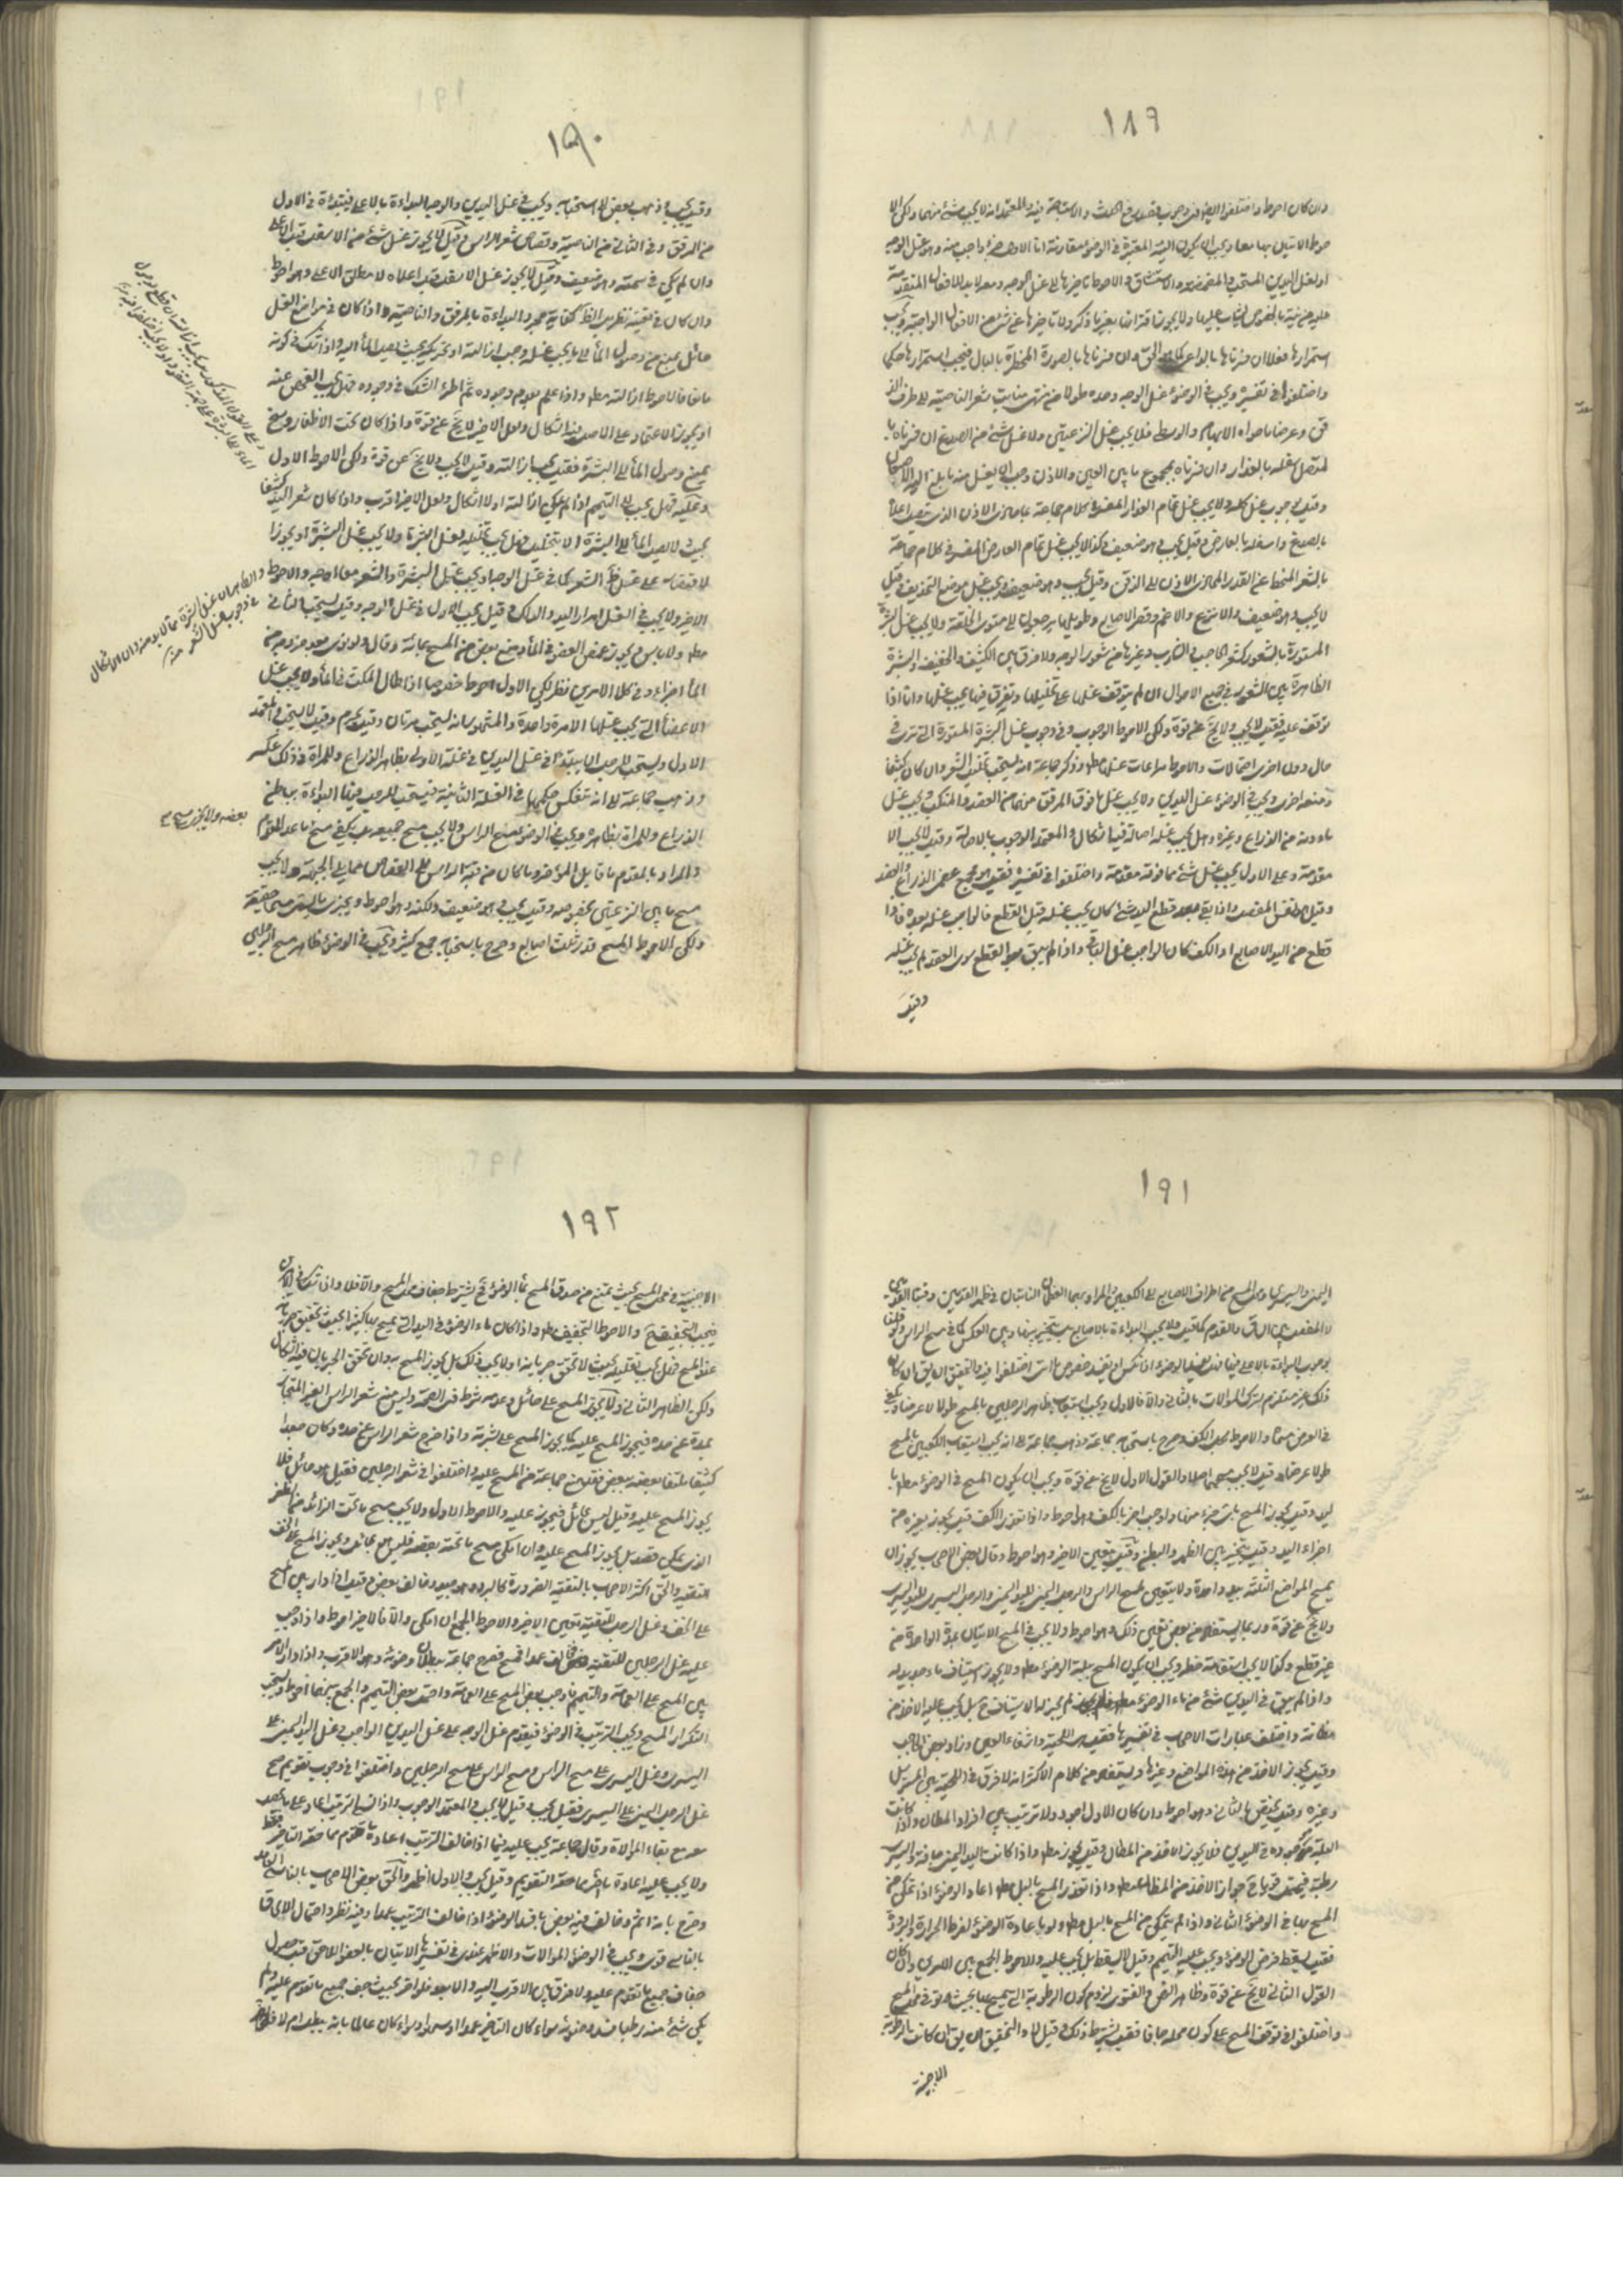 ١٨٩
وان كان احوط واختلفوا ايضا في وجوب قصد رفع الحدث والاستباحة فيه والمعتمد انه لا يجب شئ منهما ولكن الا
حوط الاتيان بهما معا ويجب ان يكون النية المعتبرة في الوضوء مقارنة اما لاول جزء واجب منه وهو غسل الوجه
او لغسل اليدين المستحب والمضمضة والاستنشاق والاحوط تاخيرها الى غسل الوجه
استمرارها فعلا ان فسرناها بالداعي كما هو الحق وان فسرناها بالصورة المخطرة بالبال فيجب استمرارها حكما
واختلفوا في تفسيره ويجب في الوضوء غسل الوجه وحده طولا من منتهى منابت شعر الناصية الى طرف الذ
قن وعرضا ما حواه الابهام والوسطى فلا يجب غسل النزعتين ولا غسل شئ من الصدغ ان فسرناه با
لمتصل اسفله بالعذار وان فسرناه بمجموع ما بين العين والاذن وجب ان يغسل منه ما بلغ اليه الاصبعان
وقيل بوجوب غسل كله ولا يجب غسل تمام العذار المفسر في كلام جماعة بما حاذى الاذن الذي يتصل اعلاه
بالصدغ واسفله بالعارض وقيل يجب وهو ضعيف وكذا لا يجب غسل تمام العارض المفسر في كلام جماعة
بالشعر المنحط عن القدر المحاذي للاذن الى الذقن وقيل يجب وهو ضعيف ويجب غسل موضع التحذيف وقيل
لا يجب وهو ضعيف والانزع والاغم وقصير الاصابع وطويلها يرجعون الى مستوى الخلقة ولا يجب غسل البشرة
المستورة بالشعور كشعر الحاجب والشارب وغيرها من شعور الوجه ولا فرق بين الكثيف والخفيف والبشرة
الظاهرة بين الشعور في جميع الاحوال ان لم يتوقف غسلها على تخليلها
توقف عليه فقيل لا يجب ولا يخ عن قوة ولكن الاحوط الوجوب وفي وجوب غسل البشرة المستورة التي ترى في
حال دون اخرى احتمالات والاحوط مراعات غسلها مط وذكر جماعة انه يستحب تخليل الشعر وان كان كثيفا
ومنعه اخرى ويجب في الوضوء غسل اليدين ولا يجب غسل ما فوق المرفق منهما من العضد والمنكب ويجب غسل
ما دونه من الذراع وغيره وهل يجب غسله اصالة فيه اشكال والمعتمد الوجوب بالاصالة وقيل لا يجب الا
مقدمة وعلى الاول يجب غسل شئ مما فوقه مقدمة واختلفوا في تفسيره فقيل هو مجمع عظمي الذراع والعضد
وقيل هو نفس المفصل واذا بقي بعد قطع اليد شئ كان يجب غسله قبل القطع فالواجب غسله بعده فاذا
قطع من اليد الاصابع او الكف كان الواجب غسل الباقي واذا لم يبق بعد القطع سوى العضد لم يجب غسله
وقيل
١٩٠
وقيل يجب وذهب بعض الى استحبابه ويجب في غسل اليدين والوجه البداءة بالاعلى فيبتدأ في الاول
من المرفق وفي الثاني من الناصية وقصاص شعر الراس وقيل لا يجوز غسل شئ من الاسفل قبل الاعلى
وان لم يكن في سمته وهو ضعيف وقيل لا يجوز غسل الاسفل قبل اعلاه لا مطلق الاعلى وهو احوط
وان كان في تعينه نظر بل الظ كفاية مجرد البداءة بالمرفق والناصية واذا كان في مواضع الغسل
حائل يمنع من وصول الماء الى ما يجب غسله وجب ازالته او تحريكه بحيث يصل الماء اليه واذا شك في كونه
مانعا فالاحوط ازالته مط واذا علم بعدم وجوده ثم اطرء الشك في وجوده فهل يجب الفحص عنه
او يجوز الاعتماد على الاصل فيه اشكال ولعل الاخير لا يخ عن قوة واذا كان تحت الاظفار وسخ
يمنع وصول الماء الى البشرة فقيل يجب ازالته وقيل لا يجب ولا يخ عن قوة ولكن الاحوط الاول
وعليه فهل يجب التيمم اذا لم يمكن ازالته او لا اشكال ولعل الاخير اقرب واذا كان شعر اليد كثيفا
بحيث لا يصل الماء الى البشرة الا بتخليل فهل يجب تخليله وغسل البشرة او لا يجب غسل البشرة او يجوز ا
لاقتصار على غسل ظ الشعر كما في غسل الوجه او يجب غسل البشرة والشعر معا اوجه والاحوط
الاخير ولا يجب في الغسل امرار اليد والدلك وقيل يجب الاول في غسل الوجه وقيل يستحب الثاني
الماء اجزاء وفي كلا الامرين نظر لكن الاول احوط خصوصا اذا طال المكث في الماء ولا يجب غسل
الاعضاء التي يجب غسلها الا مرة واحدة والمشهور انه يستحب مرتان وقيل يحرم وقيل لا يستحب والمعتمد
الاول ويستحب للرجل ان يبتدأ في غسل اليدين في غسلة الاولى بظاهر الذراع وللمراة في ذلك عكس
وذهب جماعة الى انه تنعكس حكمها في الغسلة الثانية فيستحب للرجل فيها البداءة بباطن
الذراع وللمراة بظاهره ويجب في الوضوء مسح الراس ولا يجب مسح جميعه بل يكفي مسح ما عدا المقدم
والمراد بالمقدم ما قابل المؤخر وما كان من قبة الراس الى القصاص مما يلي الجبهة فلا يجب
مسح ما بين النزعتين بخصوصه وقيل يجب وهو ضعيف ولكنه هو احوط ويجزي ما يسمى مسحا حقيقة
ولكن الاحوط المسح قدر ثلث اصابع وصرح باستحبابه جمع كثير ويجب في الوضوء ظاهر مسح الرجلين
بعضه ولا يجزي مسح
١٩١
اليمنى واليسرى ومحل المسح من اطراف الاصابع الى الكعبين والمراد بهما العظمان الناتيان في ظهر القدمين وقبتا القدمين
لا المفصل بين الساق والقدم كما قيل ولا يجب البداءة بالاصابع بل يتخير بينها وبين العكس كما في مسح الراس ولو قلنا
بوجوب البداءة بالاعلى
ذلك غير مستلزم لترك الموالات بالثاني والا فالاول ويجب استيعاب ظاهر الرجلين بالمسح طولا لا عرضا ويكفي
في العرض مسماه والاحوط بكل الكف وصرح باستحبابه جماعة وذهب جماعة الى انه يجب استيعاب الكعبين بالمسح
طولا وعرضا وقيل لا يجب مسحهما اصلا والقول الاول لا يخ عن قوة ويجب ان يكون المسح في الوضوء مط با
ليد وقيل يجوز المسح باي جزء منها واوجب اخر بالكف وهو احوط واذا تعذر الكف قيل يجوز بغيره من
اجزاء اليد وقيل يتخير بين الظهر والبطن وقيل يتعين الاخير وهو احوط وقال بعض الاصحاب يجوز ان
يمسح المواضع الثلثة بيد واحدة ولا يتعين لمسح الراس والرجل اليمنى اليد اليمنى والرجل اليسرى لليد اليسرى
ولا يخ عن قوة وربما يستفاد من بعض تعين ذلك وهو احوط ولا يجب في المسح الاتيان بمدة الواحدة من
غير قطع وكذا لا يجب استقامة خطه ويجب ان يكون المسح ببلة الوضوء مط ولا يجوز استيناف ماء جديد له
واذا لم يبق في اليدين شئ من ماء الوضوء لم يجز له الاستيناف ح بل يجب عليه الاخذ من
مظانه واختلف عبارات الاصحاب في تفسيرها فقيل هي اللحية واشفار العين وزاد بعض الحاجب
وقيل يجوز الاخذ من هذه المواضع وغيرها ويستفاد من كلام الاكثر انه لا فرق في اللحية بين المسترسل
وغيره وقيل يختص بالثاني وهو احوط وان كان الاول اجود ولا ترتيب بين افراد المظان واذا كانت
البلة موجودة في اليدين فلا يجوز الاخذ من المظان وقيل يجوز مط واذا كانت اليد اليمنى جافة واليسرى
المسح بها في الوضوء الثاني واذا لم يتمكن من المسح بالبلل مط ولو باعادة الوضوء لفرط الحرارة والبرودة
فقيل يسقط فرض الوضوء ويجب عليه التيمم وقيل لا يسقط بل يجب عليه والاحوط الجمع بين الامرين وان كان
القول الثاني لا يخ عن قوة وظاهر النص والفتوى لزوم كون الرطوبة التي يمسح بها بحيث يؤثر في محل المسح
واختلفوا في توقف المسح على كون محله جافا فقيل يشترط ذلك وقيل لا والتحقيق ان يق ان كانت الرطوبة
الاجنبية
١٩٢
الاجنبية في محل المسح بحيث تمنع من صدق المسح بماء الوضوء فح يشترط جفاف محل المسح والا فلا واذا شك في الامرين
فيجب التجفيف ح والاحوط التجفيف مط واذا كان ماء الوضوء في اليد التي يمسح بها كثيرا بحيث تحقق جريانه
عند المسح فهل يجب تقليله بحيث لا يتحقق جريانه او لا يجب ذلك بل يجوز المسح به وان تحقق الجريان فيه اشكال
ولكن الظاهر الثاني ولا يجوز المسح على حائل وعدمه شرط في الصحة وليس منه شعر الراس الغير المتجاوز
بمده عن حده فيجوز المسح عليه كما يجوز المسح على بشرته واذا خرج شعر الراس عن حده وكان جعدا
كثيفا ملتفا بعضه ببعض فقد منع جماعة من المسح عليه واختلفوا في شعر الرجلين فقيل هو حائل فلا
يجوز المسح عليه وقيل ليس بحائل فيجوز عليه والاحوط الاول ولا يجب مسح ما تحت الزائد من الظفر
الذي يمكن قصه بل يجوز المسح عليه وان امكن مسح ما تحته بقصه فليس هو بحائل ويجوز المسح على الخف
للتقية والحق اكثر الاصحاب بالتقية الضرورة كالبرد وهو جيد وخالف بعض وقيل اذا دار بين المسح
على الخف وغسل الرجل للتقية يتعين الاخير والاحوط الجمع ان امكن والا فالاخير احوط واذا وجب
عليه غسل الرجلين للتقية فخالف عمدا فمسح فصرح جماعة ببطلان وضوئه وهو الاقرب واذا دار الامر
بين المسح على العمامة والتيمم فاوجب بعض المسح على العمامة واحتمل بعض التيمم والجمع بينهما احوط ولا يستحب
التكرار المسح ويجب الترتيب في الوضوء فيقدم غسل الوجه على غسل اليدين الواجب غسل اليد اليمنى على
اليسرى وغسل اليسرى على مسح الراس ومسح الراس على مسح الرجلين واختلفوا في وجوب تقديم مسح
غسل الرجل اليمنى على اليسرى فقيل يجب وقيل لا يجب والمعتمد الوجوب واذا نسي الترتيب اعاد على ما يحصل
معه مع بقاء الموالاة وقال جماعة يجب عليه فيما اذا خالف الترتيب اعادة ما تقدم مما حقه التاخير فقط
ولا يجب عليه اعادة ما تاخر مما حقه التقديم وقيل يجب والاول اظهر والحق بعض الاصحاب بالناسي العامد
وصرح بانه اثم وخالف فيه بعض فافسد الوضوء اذا خالف الترتيب عمدا وفيه نظر واحتمال الالحاق
بالناسي قوي ويجب في الوضوء الموالات والاظهر عندي في تفسيرها الاتيان بالعضو اللاحق قبل حصول
جفاف جميع ما تقدم عليه ولا فرق بين الاقرب اليه والابعد فلو اخر بحيث جف جميع ما تقدم عليه ولم
يكن شئ منه رطبا فسد وضوئه سواء كان التاخير عمدا او سهوا وسواء كان عالما بانه يبطل ام لا